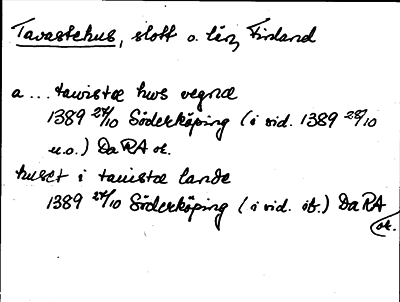 Tavastehus, slott o. län, Finland
a ... tawistæ hws vegnæ
1389 27/10 Söderköping (i vid. 1389 28/10
u.o.) DaRA or.
huset i tauistæ lande
1389 27/10 Söderköping (i vid. ib.) DaRA
or.